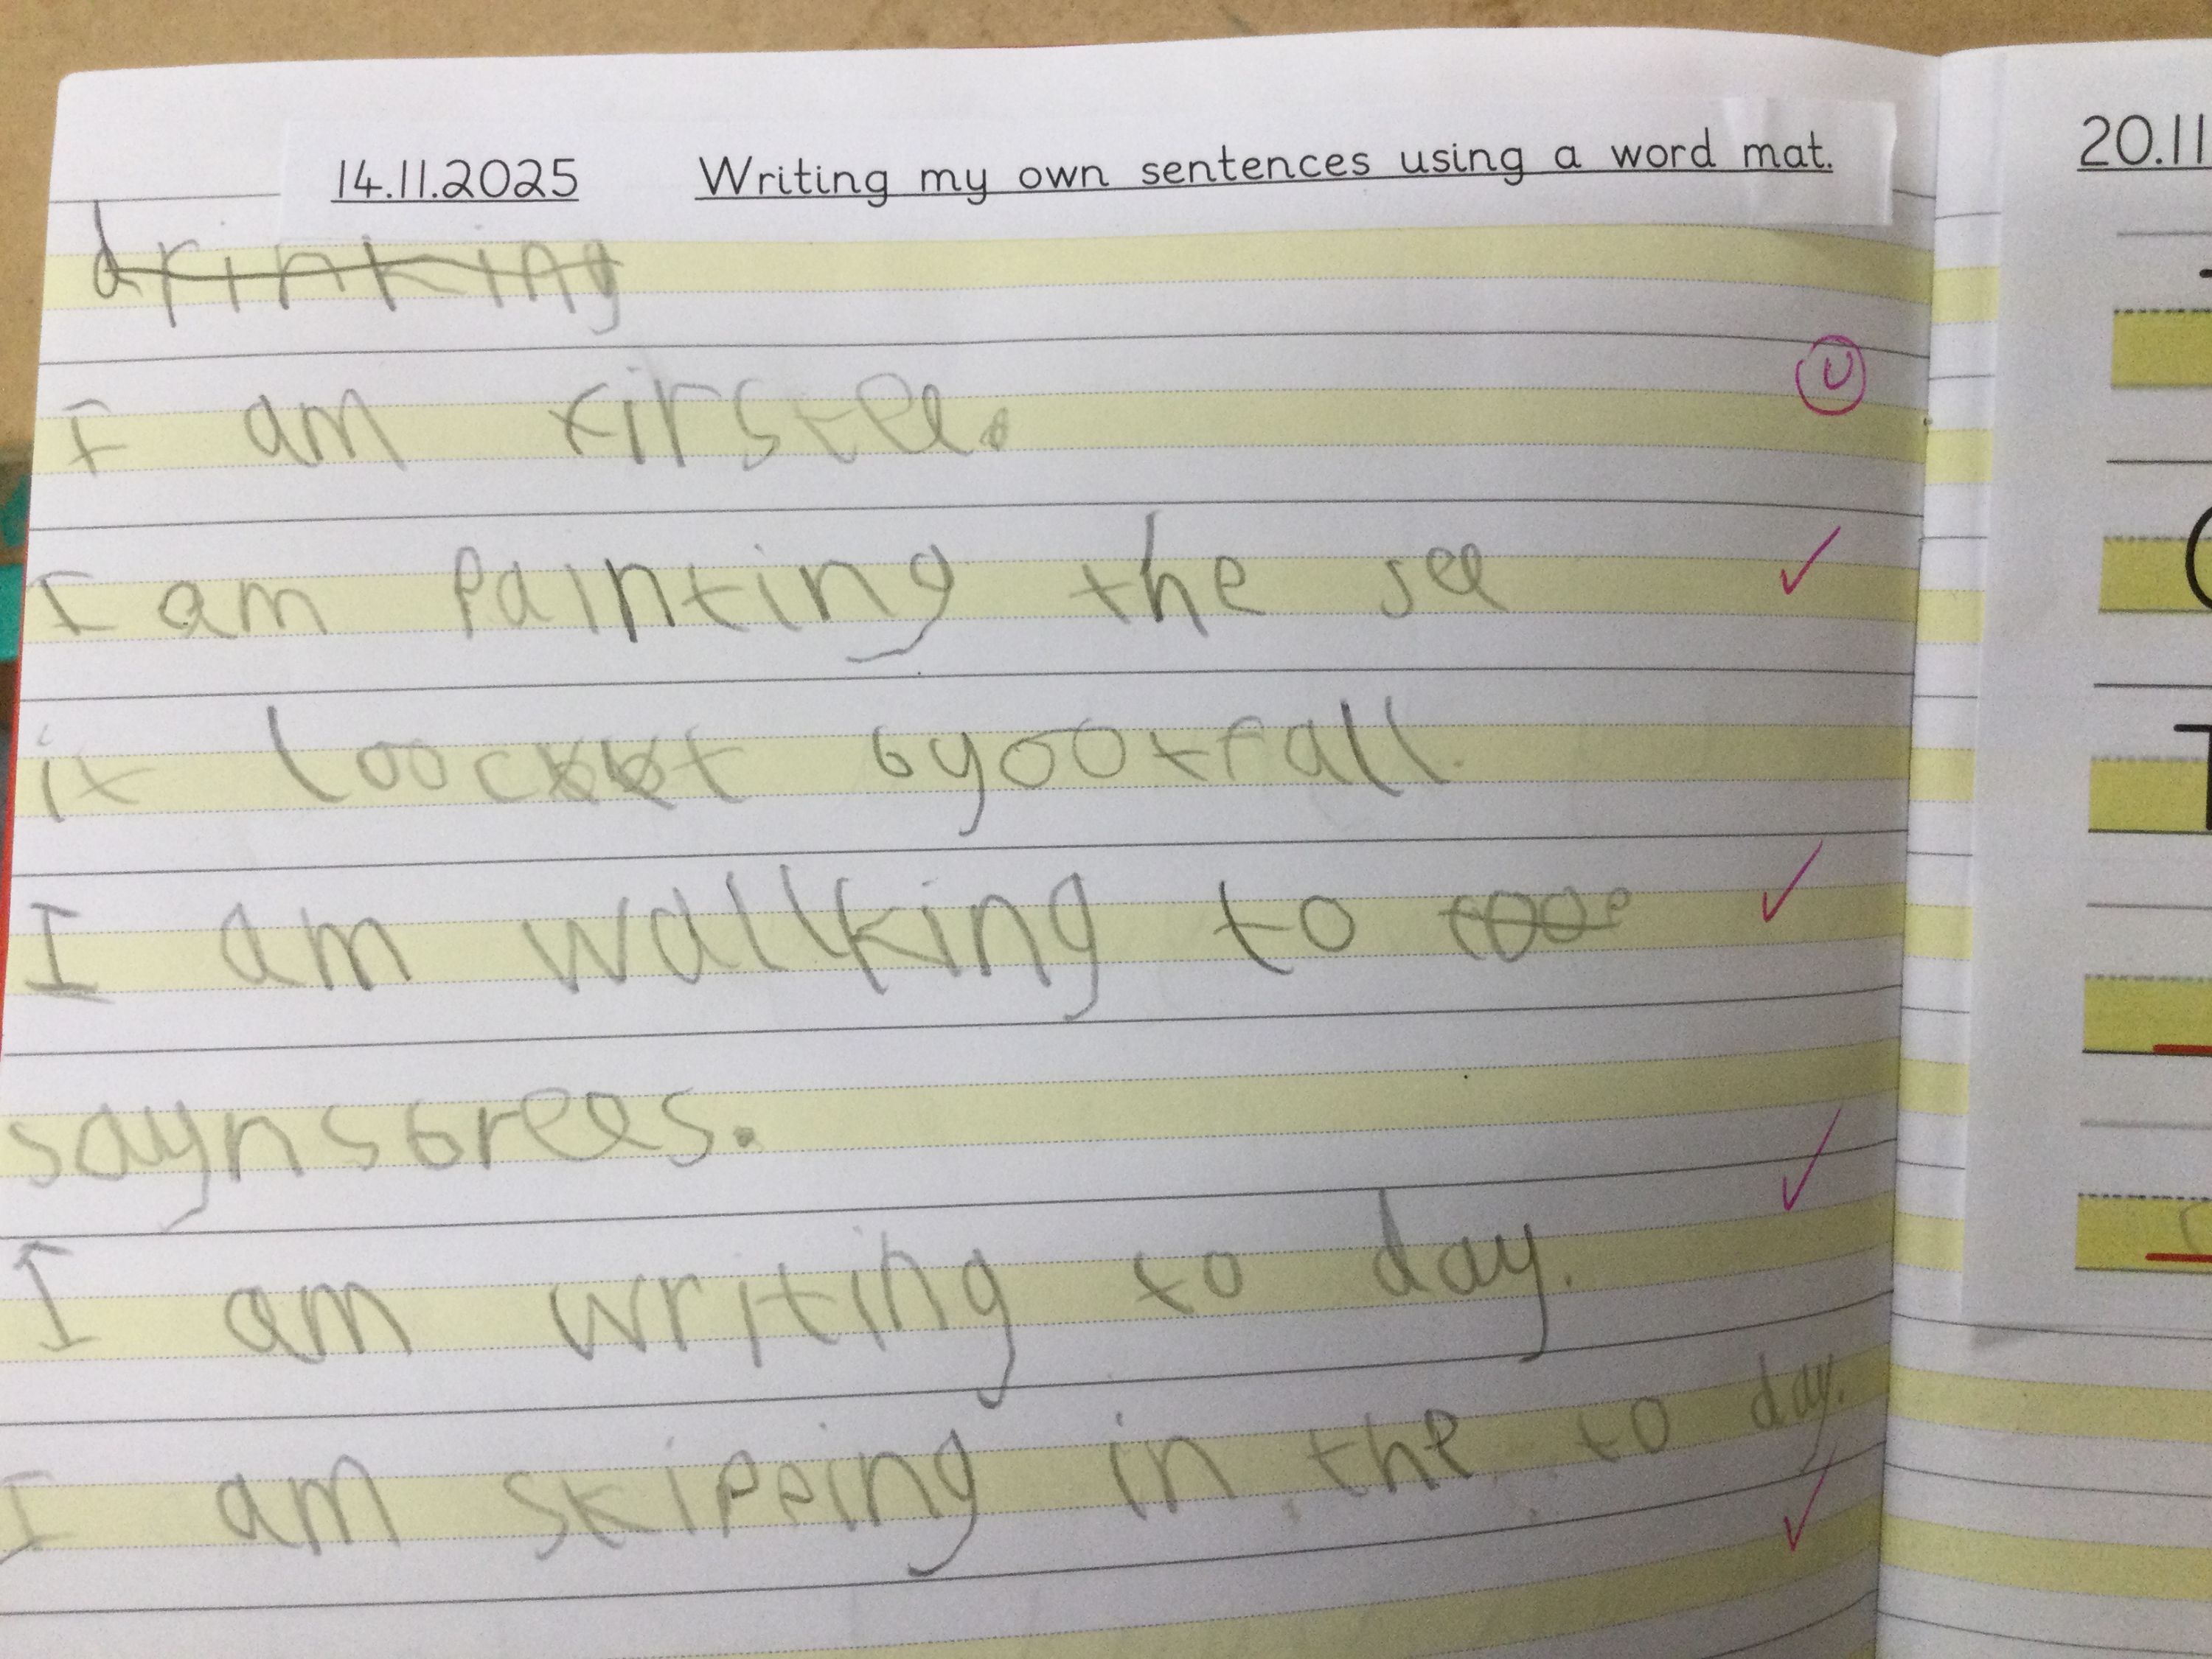 14.11.2025 Writing my own sentences using a word mat.
drinking
I am firstee.
I am painting the see
it loocket byootfall.
I am wallking to
saynsbrees.
I am writing to day.
I am skipping in the to day.
20.11